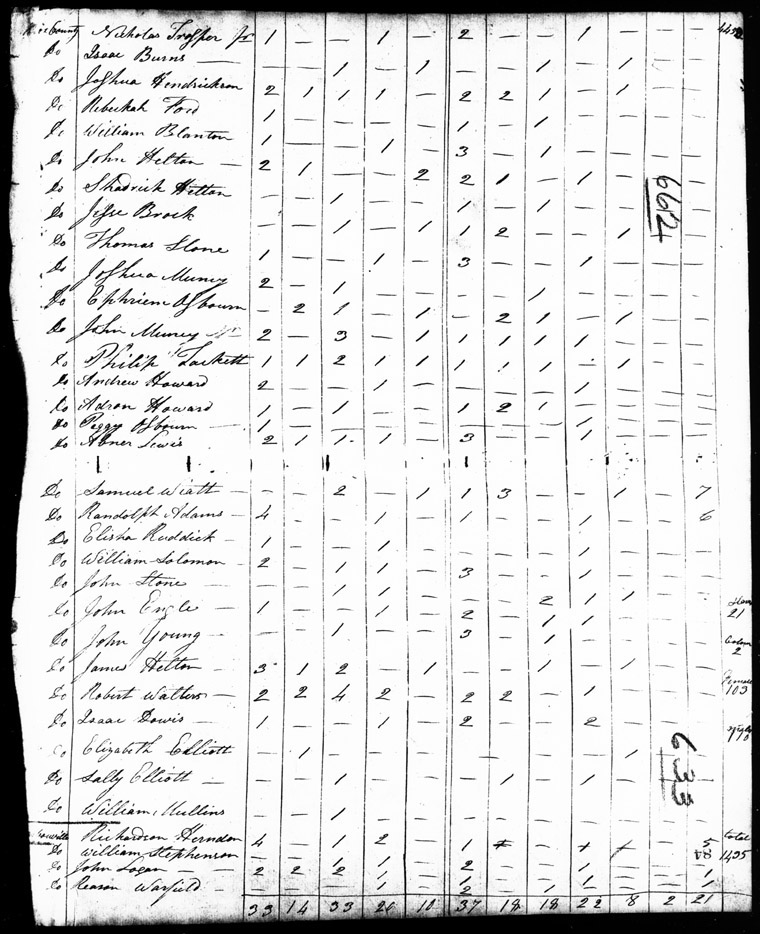 County Nicholas Trosper Jr 1 — — 1 — 2 — — 1 — — —
Do Isaac Burns — — — 1 — 1 — — 1 — 1 — —
Do Joshua Hendrickson 2 1 1 1 — 2 2 1 — 1 — —
Do Rebeckah Ford 1 — — — — 1 — 1 — — — —
Do William Blanton 1 — — 1 — 3 — 1 — — — —
Do John Helton — 2 1 — — 2 2 1 — 1 — — —
Do Shadrick Helton — — 1 — — 1 — 1 — — — —
Do Jesse Brock — — 1 — 1 1 2 — — 1 — —
Do Thomas Stone 1 — — 1 — 3 — — 1 — — —
Do Joshua Muncy 2 — 1 — — — — 1 — — — —
Do Ephriem Osbourn — 2 1 — 1 — 2 1 — 1 — —
Do John Muncy 2 — 3 — 1 1 1 1 1 — — —
Do Philip Lockett 1 1 2 1 1 1 1 1 — 1 — —
Do Andrew Howard 2 — — 1 — — — — 1 — — —
Do Adron Howard 1 — 1 — — 1 2 1 — — — —
Do Peggy Osbourn — 1 — — — — — — — 1 — — —
Do Abner Lewis 2 1 1 1 — 3 — — 1 — — —
Do Samuel Wiatt — — — 2 — 1 1 3 — — 1 — 7
Do Randolph Adams — 4 — — 1 — 1 — — 1 — — 6
Do Elisha Ruddick — 1 — — 1 — — — — 1 — — —
Do William Solomon — 2 — 1 1 — 3 — — 1 — — —
Do John Stone — — — 1 1 — — — 2 1 1 — —
Do John Engle — 1 — — 1 — 2 — 1 1 — — —
Do John Young — — — 1 — — 3 — 1 — — — —
Do James Helton — 3 1 2 — 1 — — 1 — 1 — —
Do Robert Watters — 2 2 4 2 — 2 2 — 1 — — —
Do Isaac Dowis — 1 — — 1 — 2 — — 2 — — —
Do Elizabeth Elliott — 1 — — — — — — — 1 — —
Do Sally Elliott — — — 1 — — — 1 — 1 — — —
Do William Mullins — — 1 — — — — — — — — —
Richardson Herndon 4 — 1 2 — 1 — — — 5
Do William Stephenson — — 1 1 — — — —
Do John Logan — 2 2 2 — — 2 — — — — — 1
Do Reason Warfield — — — — 1 — 2 — 1 1 — — 1
33 14 33 26 10 37 18 18 22 8 2 21
662
633
21
2
103
110
total
1435